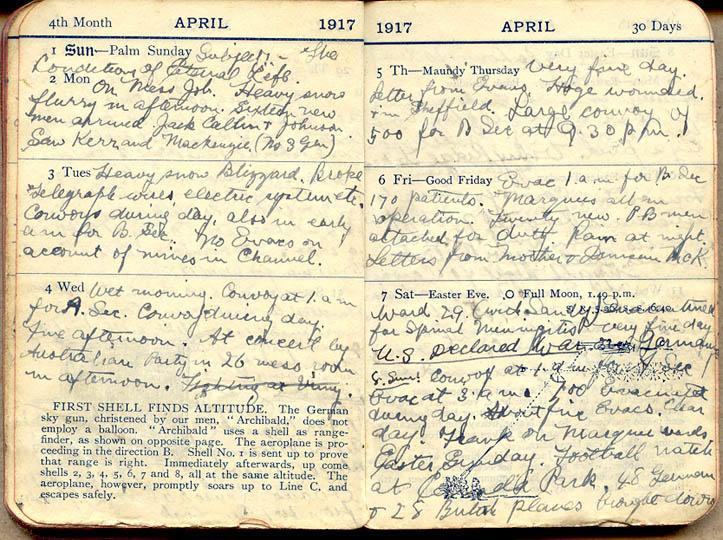 4th Month APRIL 1917
1 Sun—Palm Sunday Subject - The
Condition of Eternal Life.
2 Mon On Mess Job. Heavy snow
flurry in afternoon. Sixteen new
men arrived Jack Callin + Johnson.
Saw Kerr and Mackenzie (No 3 Gen)
3 Tues Heavy snow Blizzard. Broke
telegraph wires, electric system etc.
Convoys during day, also in early
a m for B. Sec. No Evacs on
account of mines in Channel.
4 Wed Wet morning. Convoy at 1. a m
for A. Sec. Convoy during day.
Fine afternoon. At concert by
Australian Party in 26 mess room
in afternoon. Fighting at Vimy.
FIRST SHELL FINDS ALTITUDE. The German
sky gun, christened by our men, "Archibald," does not
employ a balloon. "Archibald" uses a shell as range-
finder, as shown on opposite page. The aeroplane is pro-
ceeding in the direction B. Shell No. 1 is sent up to prove
that range is right. Immediately afterwards, up come
shells 2, 3, 4, 5, 6, 7 and 8, all at the same altitude. The
aeroplane, however, promptly soars up to Line C. and
escapes safely.
1917 APRIL 30 Days
5 Th—Maundy Thursday Very fine day.
Letter from Evans. Hoge wounded.
in Sheffield. Large convoy of
500 for B Sec at 9.30 p m.
6 Fri—Good Friday Evac 1. a m for B. Sec
170 patients. Marquees all in
operation. Twenty new P B men
attached for duty Rain at night.
Letters from Mother + McK.
7 Sat—Easter Eve. Full Moon, 1.49 p.m.
Ward 29.
for Spinal Meningitis. very fine day
U.S. Declared War Germany
8 Sun. Convoy at 1. a m for B Sec
Evac at 3 a m. 700 Evacuated
during day. Evacs. Clear
day. Frank on Marquee wards.
Easter Sunday. Football match
at Park. 48 German
+ 28 British planes brought down